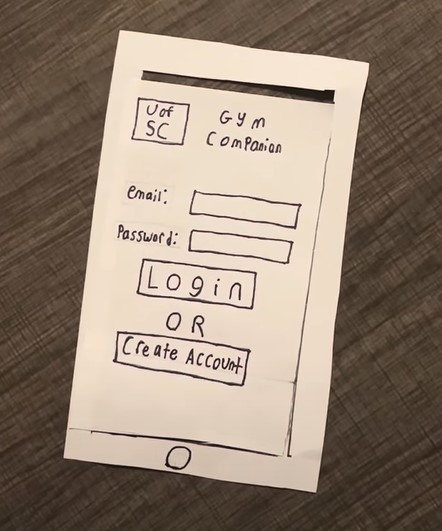 U of
SC
Gym
Companion
email:
Password:
Login
OR
Create Account